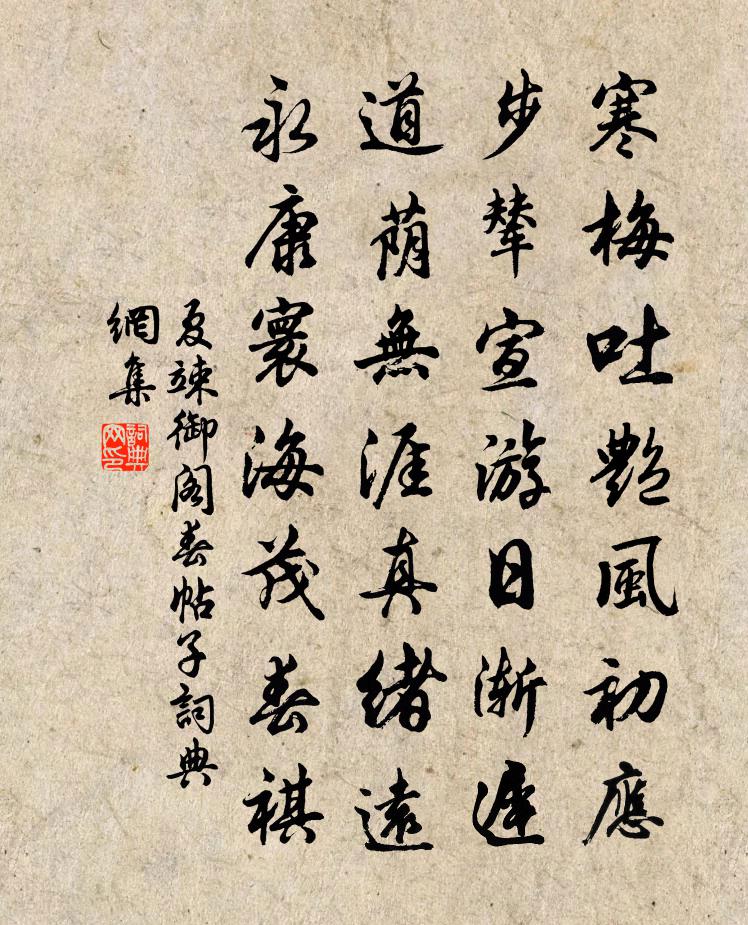 寒梅吐艷風初應
步輦宣游日漸遲
道蔭無涯真緒遠
永康寰海茂春祺
夏竦御閣春帖子詞典
網集
詞典網印